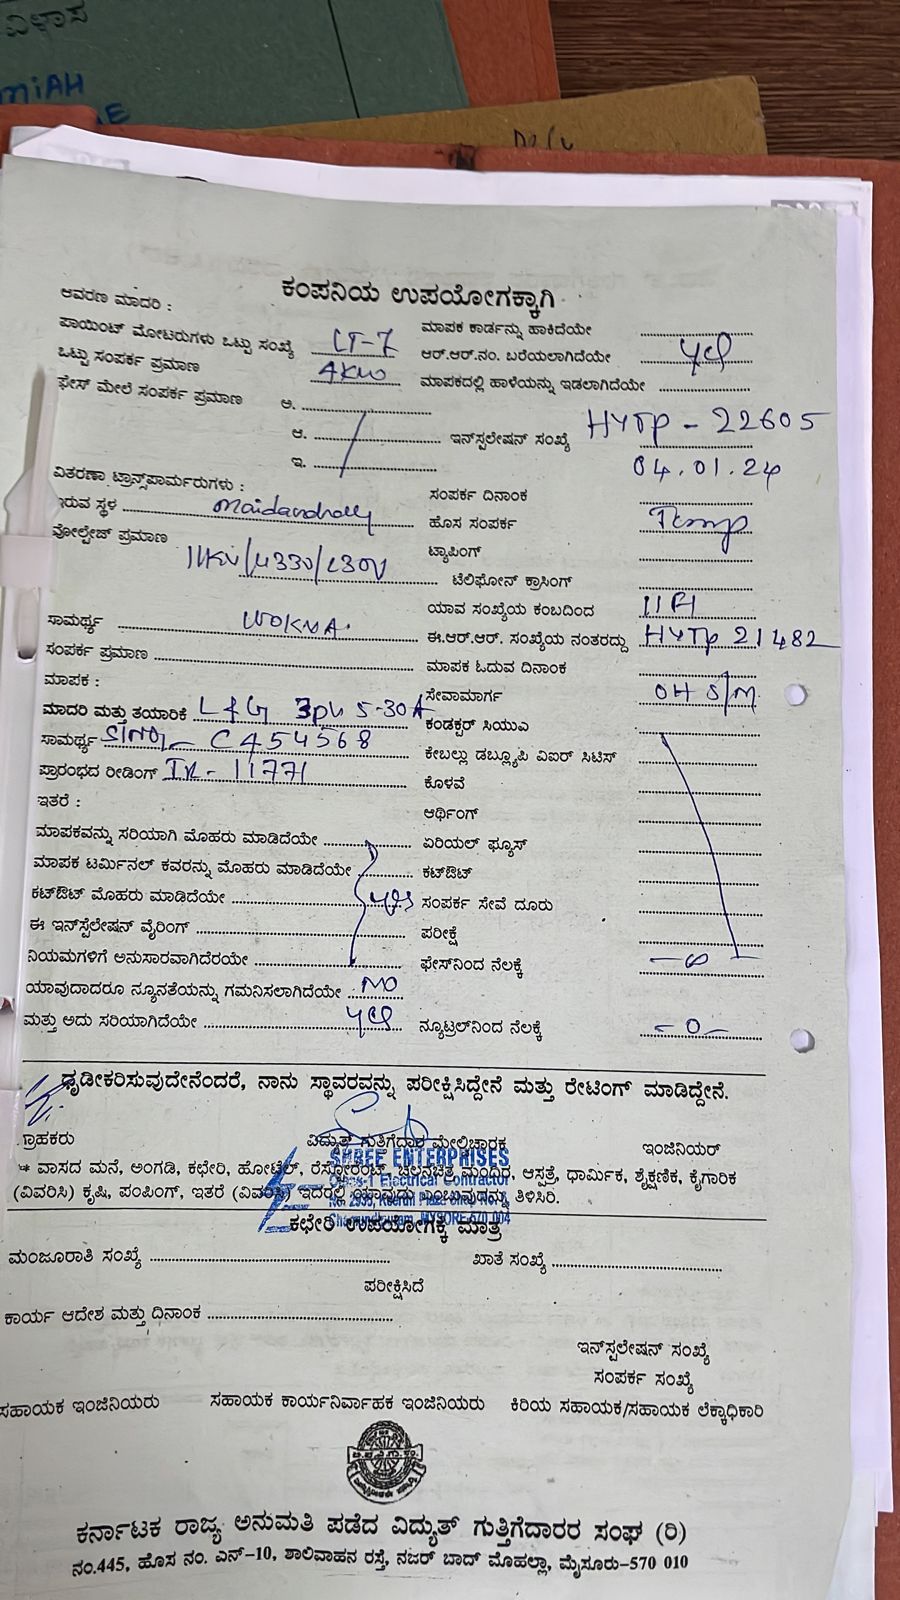 ವಿಳಾಸ
MIAH
ಕಂಪನಿಯ ಉಪಯೋಗಕ್ಕಾಗಿ
ಆವರಣ ಮಾದರಿ :
ಮಾಪಕ ಕಾರ್ಡನ್ನು ಹಾಕಿದೆಯೇ
ಪಾಯಿಂಟ್ ಮೋಟರುಗಳು ಒಟ್ಟು ಸಂಖ್ಯೆ LT-7
ಆರ್.ಆರ್.ನಂ. ಬರೆಯಲಾಗಿದೆಯೇ yes
ಒಟ್ಟು ಸಂಪರ್ಕ ಪ್ರಮಾಣ 4KW
ಮಾಪಕದಲ್ಲಿ ಹಾಳೆಯನ್ನು ಇಡಲಾಗಿದೆಯೇ
ಫೇಸ್ ಮೇಲೆ ಸಂಪರ್ಕ ಪ್ರಮಾಣ ಅ.
ಆ.
ಇನ್‌ಸ್ಪಲೇಷನ್ ಸಂಖ್ಯೆ HYTP - 22605
ಇ.
04.01.24
ವಿತರಣಾ ಟ್ರಾನ್ಸ್‌ಪಾರ್ಮರುಗಳು :
ಸಂಪರ್ಕ ದಿನಾಂಕ
ಇರುವ ಸ್ಥಳ
ಹೊಸ ಸಂಪರ್ಕ Temp
ವೋಲ್ಟೇಜ್ ಪ್ರಮಾಣ 11KV/433V/230V
ಟ್ಯಾಪಿಂಗ್
ಟೆಲಿಫೋನ್ ಕ್ರಾಸಿಂಗ್
ಯಾವ ಸಂಖ್ಯೆಯ ಕಂಬದಿಂದ
ಸಾಮರ್ಥ್ಯ
ಈ.ಆರ್.ಆರ್. ಸಂಖ್ಯೆಯ ನಂತರದ್ದು HYTP 21482
ಸಂಪರ್ಕ ಪ್ರಮಾಣ
ಮಾಪಕ ಓದುವ ದಿನಾಂಕ
ಮಾಪಕ :
ಸೇವಾಮಾರ್ಗ OH S/M
ಮಾದರಿ ಮತ್ತು ತಯಾರಿಕೆ L&G 3ph 5-30A
ಕಂಡಕ್ಟರ್ ಸಿಯುಎ
ಸಾಮರ್ಥ್ಯ Sl No - C454568
ಕೇಬಲ್ಲು ಡಬ್ಲ್ಯೂಪಿ ವಿಐಆರ್ ಸಿಟಿಸ್
ಪ್ರಾರಂಭದ ರೀಡಿಂಗ್ IR - 11771
ಕೊಳವೆ
ಇತರೆ :
ಆರ್ಥಿಂಗ್
ಮಾಪಕವನ್ನು ಸರಿಯಾಗಿ ಮೊಹರು ಮಾಡಿದೆಯೇ
ಏರಿಯಲ್ ಫ್ಯೂಸ್
ಮಾಪಕ ಟರ್ಮಿನಲ್ ಕವರನ್ನು ಮೊಹರು ಮಾಡಿದೆಯೇ
ಕಟ್‌ಔಟ್
ಕಟ್‌ಔಟ್ ಮೊಹರು ಮಾಡಿದೆಯೇ yes
ಸಂಪರ್ಕ ಸೇವೆ ದೂರು
ಈ ಇನ್‌ಸ್ಪೆಲೇಷನ್ ವೈರಿಂಗ್
ಪರೀಕ್ಷೆ
ನಿಯಮಗಳಿಗೆ ಅನುಸಾರವಾಗಿದೆರಯೇ
ಫೇಸ್‌ನಿಂದ ನೆಲಕ್ಕೆ - ∞ -
ಯಾವುದಾದರೂ ನ್ಯೂನತೆಯನ್ನು ಗಮನಿಸಲಾಗಿದೆಯೇ NO
ಮತ್ತು ಅದು ಸರಿಯಾಗಿದೆಯೇ yes
ನ್ಯೂಟ್ರಲ್‌ನಿಂದ ನೆಲಕ್ಕೆ - 0 -
ಧೃಡೀಕರಿಸುವುದೇನೆಂದರೆ, ನಾನು ಸ್ಥಾವರವನ್ನು ಪರೀಕ್ಷಿಸಿದ್ದೇನೆ ಮತ್ತು ರೇಟಿಂಗ್ ಮಾಡಿದ್ದೇನೆ.
ಗ್ರಾಹಕರು
ವಿದ್ಯುತ್ ಗುತ್ತಿಗೆದಾರ ಮೇಲ್ವಿಚಾರಕ
ಇಂಜಿನಿಯರ್
SHREE ENTERPRISES
ವಾಸದ ಮನೆ, ಅಂಗಡಿ, ಕಛೇರಿ, ಹೋಟೆಲ್, ರೆಸ್ಟೋರೆಂಟ್, ಚಲನಚಿತ್ರ ಮಂದಿರ, ಆಸ್ಪತ್ರೆ, ಧಾರ್ಮಿಕ, ಶೈಕ್ಷಣಿಕ, ಕೈಗಾರಿಕ
Class-1 Electrical Contractor
(ವಿವರಿಸಿ) ಕೃಷಿ, ಪಂಪಿಂಗ್, ಇತರೆ (ವಿವರಿಸಿ) ಇದರಲ್ಲಿ ಯಾವುದು ಎಂಬುವುದನ್ನು ತಿಳಿಸಿರಿ.
MYSORE-570 004
ಕಛೇರಿ ಉಪಯೋಗಕ್ಕೆ ಮಾತ್ರ
ಮಂಜೂರಾತಿ ಸಂಖ್ಯೆ
ಖಾತೆ ಸಂಖ್ಯೆ
ಪರೀಕ್ಷಿಸಿದೆ
ಕಾರ್ಯ ಆದೇಶ ಮತ್ತು ದಿನಾಂಕ
ಇನ್‌ಸ್ಪಲೇಷನ್ ಸಂಖ್ಯೆ
ಸಂಪರ್ಕ ಸಂಖ್ಯೆ
ಸಹಾಯಕ ಇಂಜಿನಿಯರು
ಸಹಾಯಕ ಕಾರ್ಯನಿರ್ವಾಹಕ ಇಂಜಿನಿಯರು
ಕಿರಿಯ ಸಹಾಯಕ/ಸಹಾಯಕ ಲೆಕ್ಕಾಧಿಕಾರಿ
ಕರ್ನಾಟಕ ರಾಜ್ಯ ಅನುಮತಿ ಪಡೆದ ವಿದ್ಯುತ್ ಗುತ್ತಿಗೆದಾರರ ಸಂಘ (ರಿ)
ನಂ.445, ಹೊಸ ನಂ. ಎನ್-10, ಶಾಲಿವಾಹನ ರಸ್ತೆ, ನಜರ್ ಬಾದ್ ಮೊಹಲ್ಲಾ, ಮೈಸೂರು-570 010